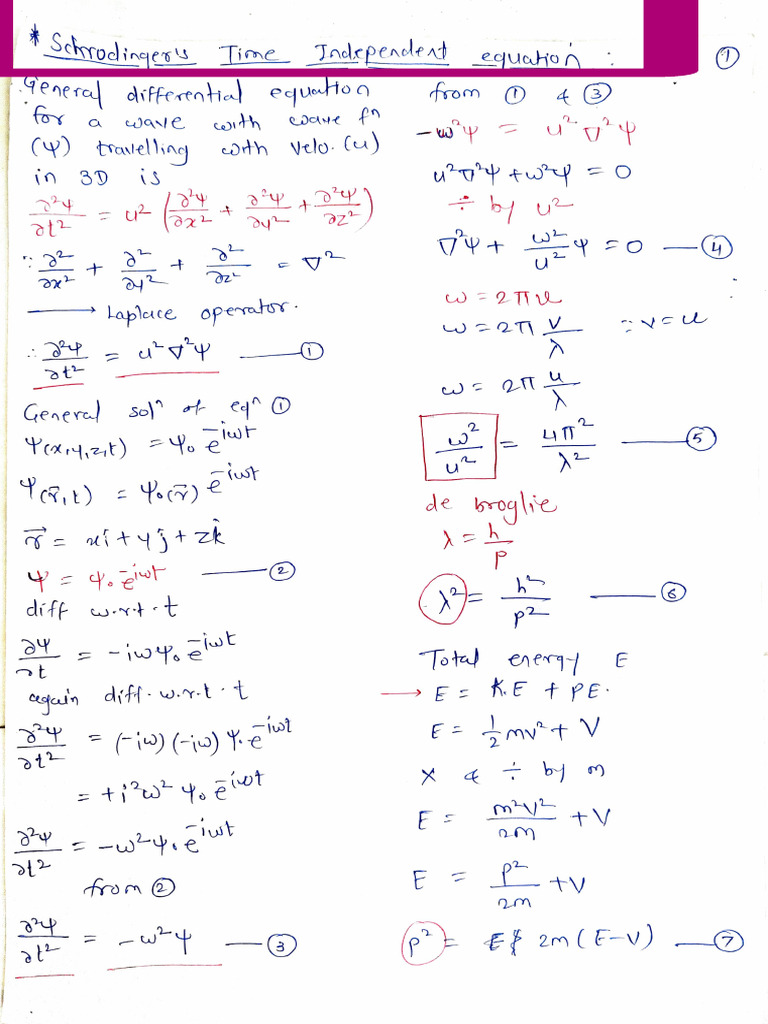 * Schrodinger's Time Independent equation : ①
General differential equation
for a wave with wave fⁿ
(Ψ) travelling with velo. (u)
in 3D is
∂²Ψ/∂t² = u² (∂²Ψ/∂x² + ∂²Ψ/∂y² + ∂²Ψ/∂z²)
∵ ∂²/∂x² + ∂²/∂y² + ∂²/∂z² = ∇²
⟶ Laplace operator.
∴ ∂²Ψ/∂t² = u² ∇²Ψ — ①
General solⁿ of eqⁿ ①
Ψ(x,y,z,t) = Ψ₀ e^-iωt
Ψ(r⃗,t) = Ψ₀(r⃗) e^-iωt
r⃗ = xi + yj + zk
Ψ = Ψ₀ e^-iωt — ②
diff w.r.t. t
∂Ψ/∂t = -iωΨ₀ e^-iωt
again diff. w.r.t. t
∂²Ψ/∂t² = (-iω)(-iω) Ψ₀ e^-iωt
= +i²ω² Ψ₀ e^-iωt
∂²Ψ/∂t² = -ω²Ψ₀ e^-iωt
from ②
∂²Ψ/∂t² = -ω²Ψ — ③
from ① & ③
-ω²Ψ = u² ∇²Ψ
u²∇²Ψ + ω²Ψ = 0
÷ by u²
∇²Ψ + ω²/u² Ψ = 0 — ④
ω = 2πν
ω = 2π v/λ ∵ v = u
ω = 2π u/λ
ω²/u² = 4π²/λ² — ⑤
de broglie
λ = h/p
λ² = h²/p² — ⑥
Total energy E
→ E = K.E + PE.
E = ½ mv² + V
× & ÷ by m
E = m²v²/2m + V
E = p²/2m + V
p² = 2m(E-V) — ⑦